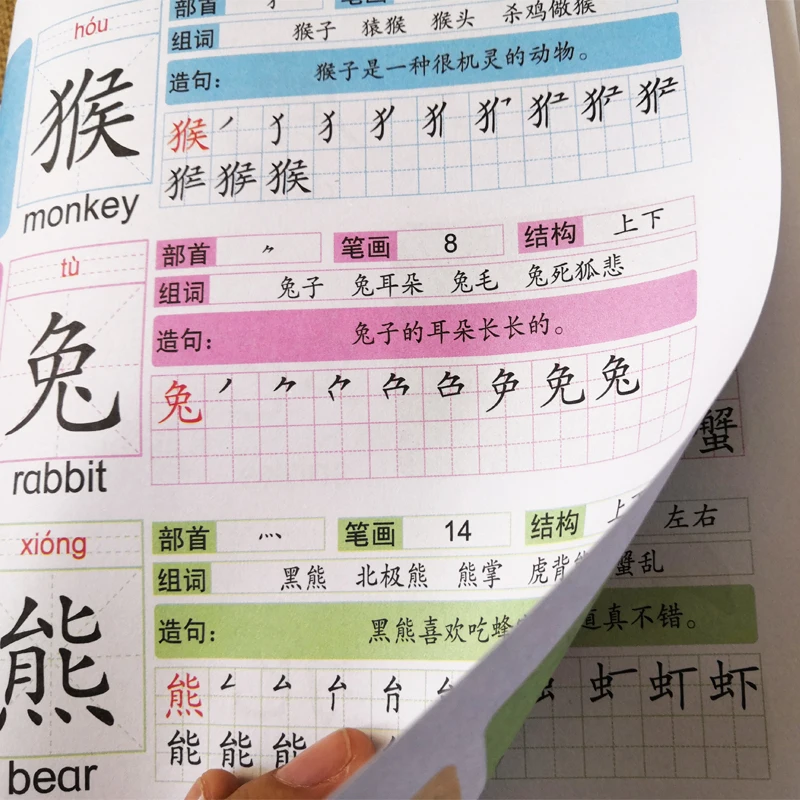 hóu
猴
monkey
部首
组词 猴子 猿猴 猴头 杀鸡做猴
造句： 猴子是一种很机灵的动物。
猴 丿 犭
猴
tù
兔
rabbit
部首 ⺈ 笔画 8 结构 上下
组词 兔子 兔耳朵 兔毛 兔死狐悲
造句： 兔子的耳朵长长的。
兔 丿 ⺈ 免 兔
蟹
xióng
熊
bear
部首 灬 笔画 14 结构 上 左右
组词 黑熊 北极熊 熊掌 虎背 蟹乱
造句： 黑熊喜欢吃蜂 真不错。
熊 厶 虫 虾
能 能 能